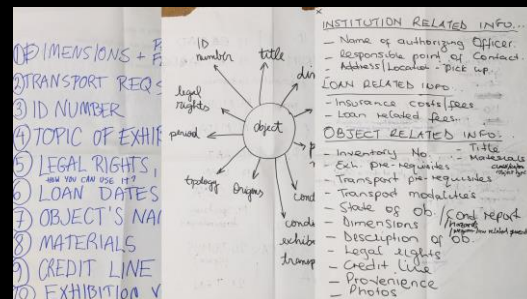 ① DIMENSIONS +
② TRANSPORT REQS
③ ID NUMBER
④ TOPIC OF EXHIB
⑤ LEGAL RIGHTS,
HOW YOU CAN USE IT?
⑥ LOAN DATES
⑦ OBJECT'S NA
⑧ MATERIALS
⑨ CREDIT LINE
⑩ EXHIBITION V
ID
number
title
legal
rights
object
period
topology
Origins
cond
exhib
transp
INSTITUTION RELATED INFO...
- Name of authorizing Officer.
- Responsible point of Contact.
- Address/Location - Pick up.
LOAN RELATED INFO
- Insurance costs/fees
- Loan related fees...
OBJECT RELATED INFO.
- Inventory No. - Title
- Exh. pre-requisites - Materials
- Transport pre-requisites
- Transport modalities
- State of ob. / Cond report
- Dimensions
- Description of ob.
- Legal rights
- Credit line
- Provenience
- Photos